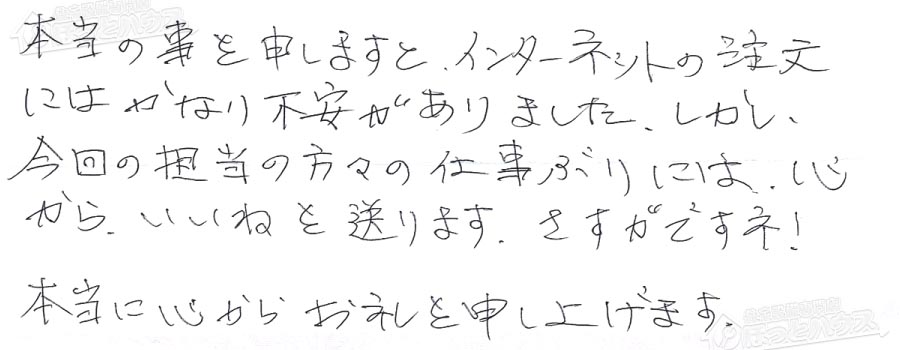 本当の事を申しますと、インターネットの注文
にはかなり不安がありました、しかし、
今回の担当の方々の仕事ぶりには、心
から、いいねを送ります。さすがですネ!
本当に心からお礼を申し上げます。